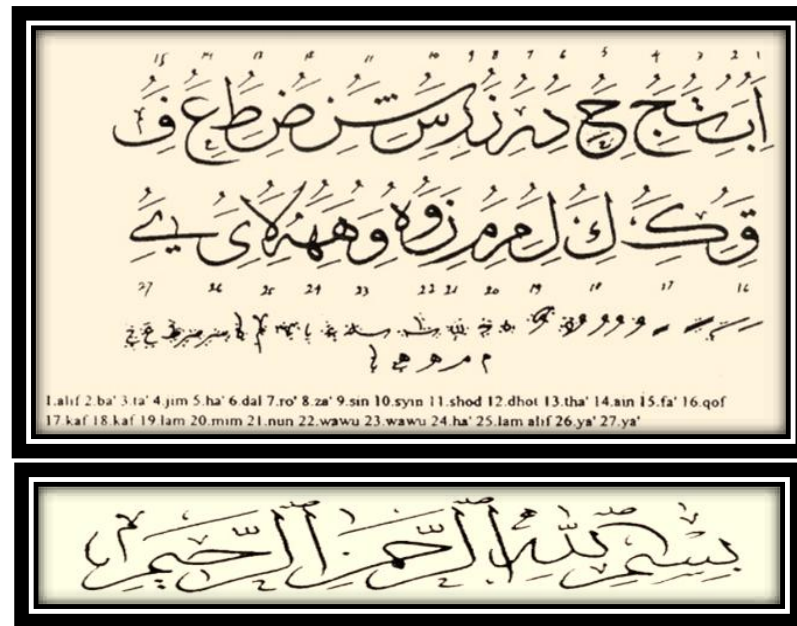 15 14 13 12 11 10 9 8 7 6 5 4 3 2 1
ا ب ت ج ح د ر ز س ش ض ط ع ف
ق ك ك ل م م ن و ه و ه ه لا ي ي
27 26 25 24 23 22 21 20 19 18 17 16
1.alif 2.ba' 3.ta' 4.jim 5.ha' 6.dal 7.ro' 8.za' 9.sin 10.syin 11.shod 12.dhot 13.tha' 14.ain 15.fa' 16.qof
17.kaf 18.kaf 19.lam 20.mim 21.nun 22.wawu 23.wawu 24.ha' 25.lam alif 26.ya' 27.ya'
بِسْمِ اللّٰهِ الرَّحْمٰنِ الرَّحِيْمِ